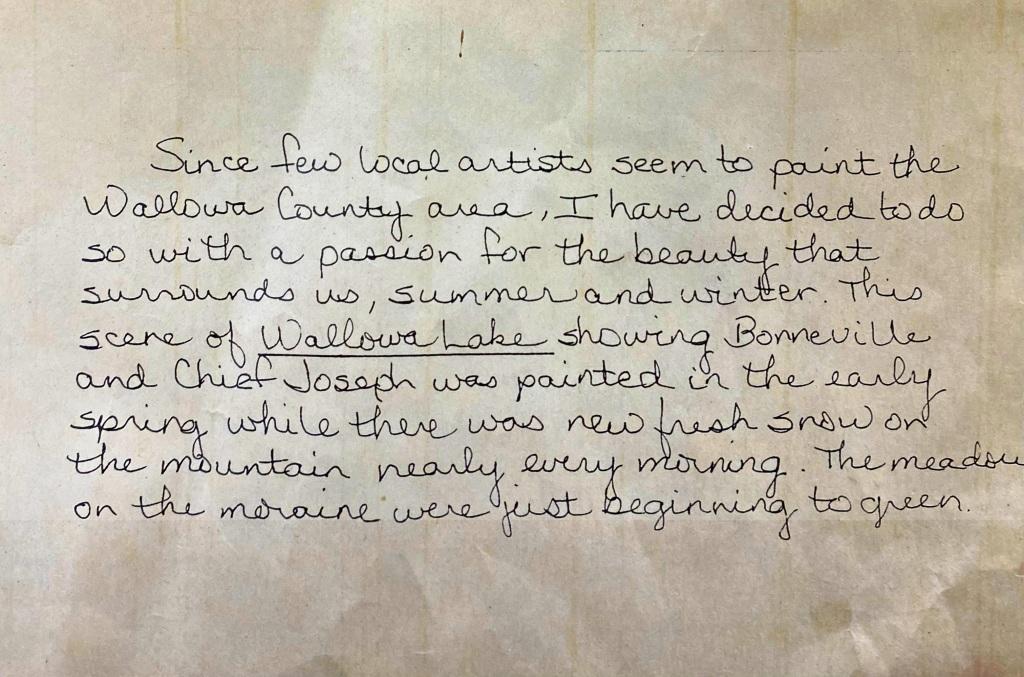 Since few local artists seem to paint the
Wallowa County area, I have decided to do
so with a passion for the beauty that
surrounds us, summer and winter. This
scene of Wallowa Lake showing Bonneville
and Chief Joseph was painted in the early
spring while there was new fresh snow on
the mountain nearly every morning. The meadow
on the moraine were just beginning to green.